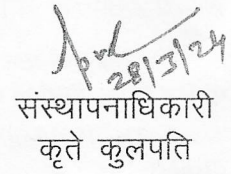 28/3/24
संस्थापनाधिकारी
कृते कुलपति